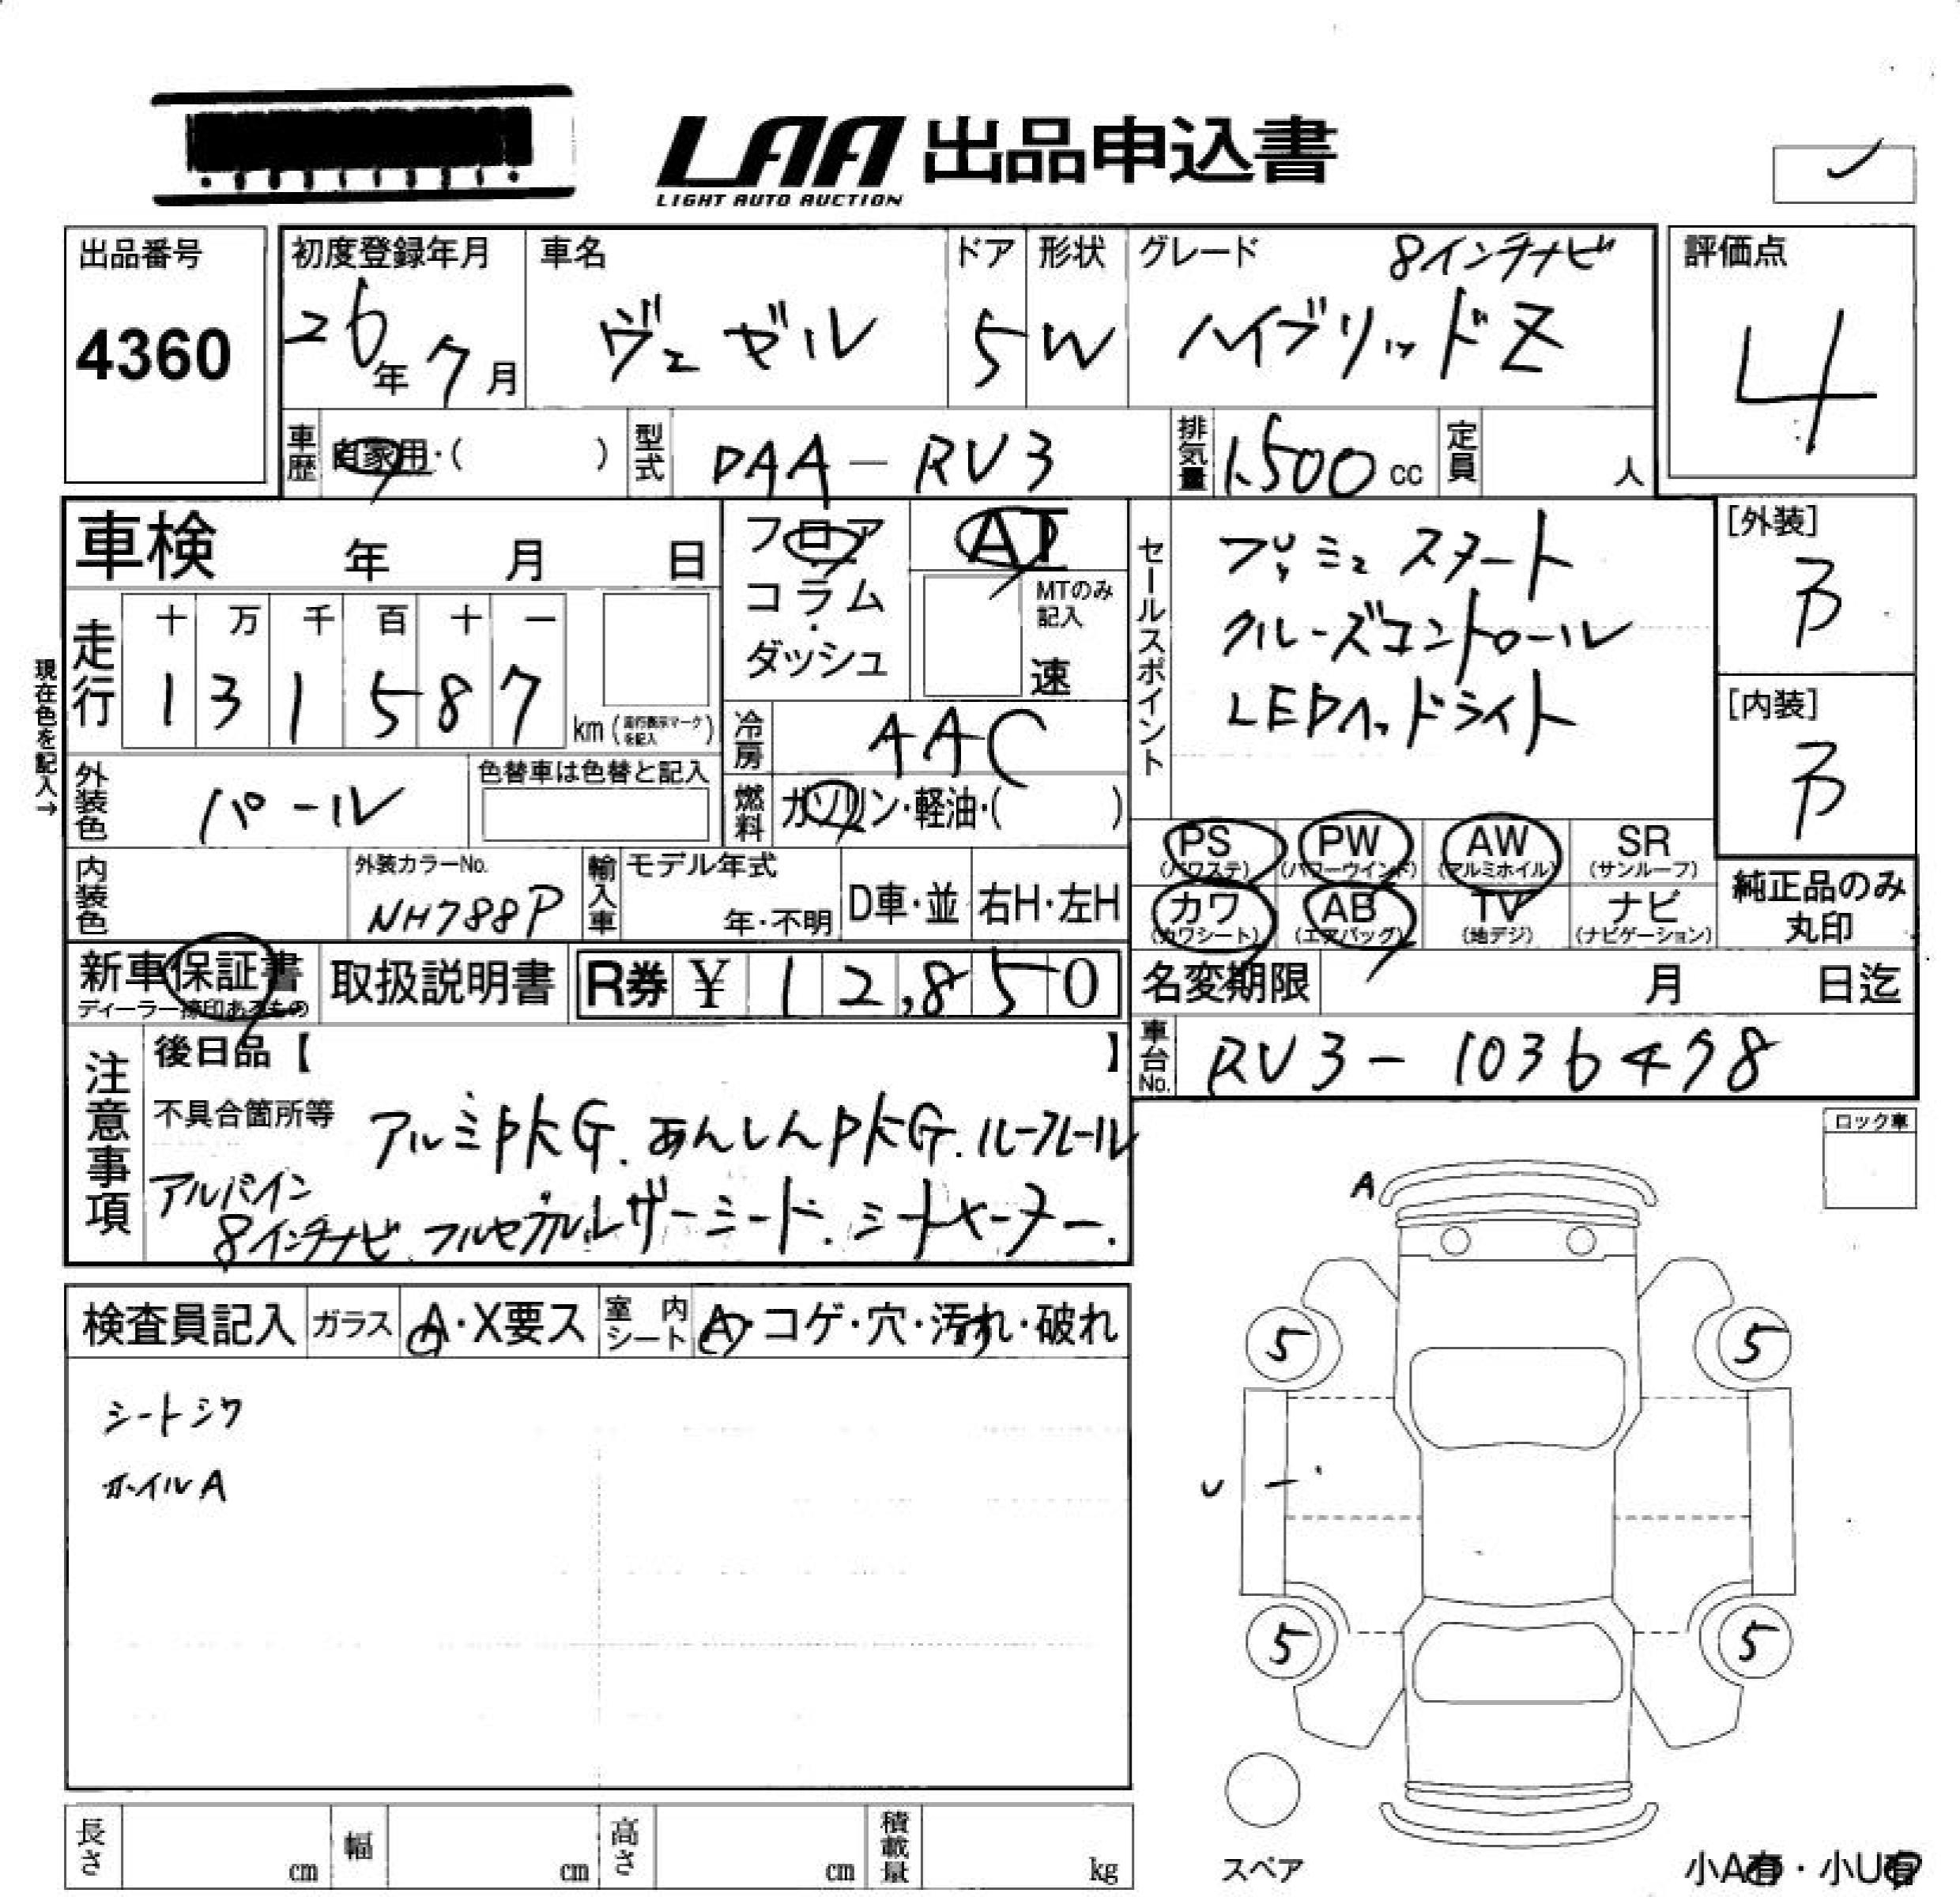 LAA 出品申込書
LIGHT AUTO AUCTION
出品番号
4360
初度登録年月
26年 7月
車名
ヴェゼル
ドア
5
形状
W
グレード
8インチナビ
ハイブリッドZ
評価点
4
車歴
自家用・( )
型式
DAA-RV3
排気量
1500 cc
定員
人
車検 年 月 日
フロア
コラム
ダッシュ
AT
MTのみ
記入
速
現在色を記入→
走行
十 万 千 百 十 一
1 3 1 5 8 7
km (走行表示マークを記入)
冷房
AAC
外装色
パール
色替車は色替と記入
燃料
ガソリン・軽油・( )
内装色
外装カラーNo.
NH788P
輸入車
モデル年式
年・不明
D車・並
右H・左H
セールスポイント
プッシュスタート
クルーズコントロール
LEDヘッドライト
[外装]
B
[内装]
B
PS
(パワステ)
PW
(パワーウインド)
AW
(アルミホイル)
SR
(サンルーフ)
カワ
(カワシート)
AB
(エアバッグ)
TV
(地デジ)
ナビ
(ナビゲーション)
純正品のみ
丸印
新車保証書
ディーラー捺印あるもの
取扱説明書
R券 ¥ 12,850
名変期限 月 日迄
車台No.
RV3-1036478
注意事項
後日品【 】
不具合箇所等
アルミPKG.あんしんPKG.ルーフレール
アルパイン
8インチナビ.フルセグ.ルレザーシート.シートヒーター.
ロック車
検査員記入
ガラス
A・X要ス
室内シート
A・コゲ・穴・汚れ・破れ
シートシワ
ホイルA
A
5
5
U
5
5
スペア
小A有・小U有
長さ
cm
幅
cm
高さ
cm
積載量
kg